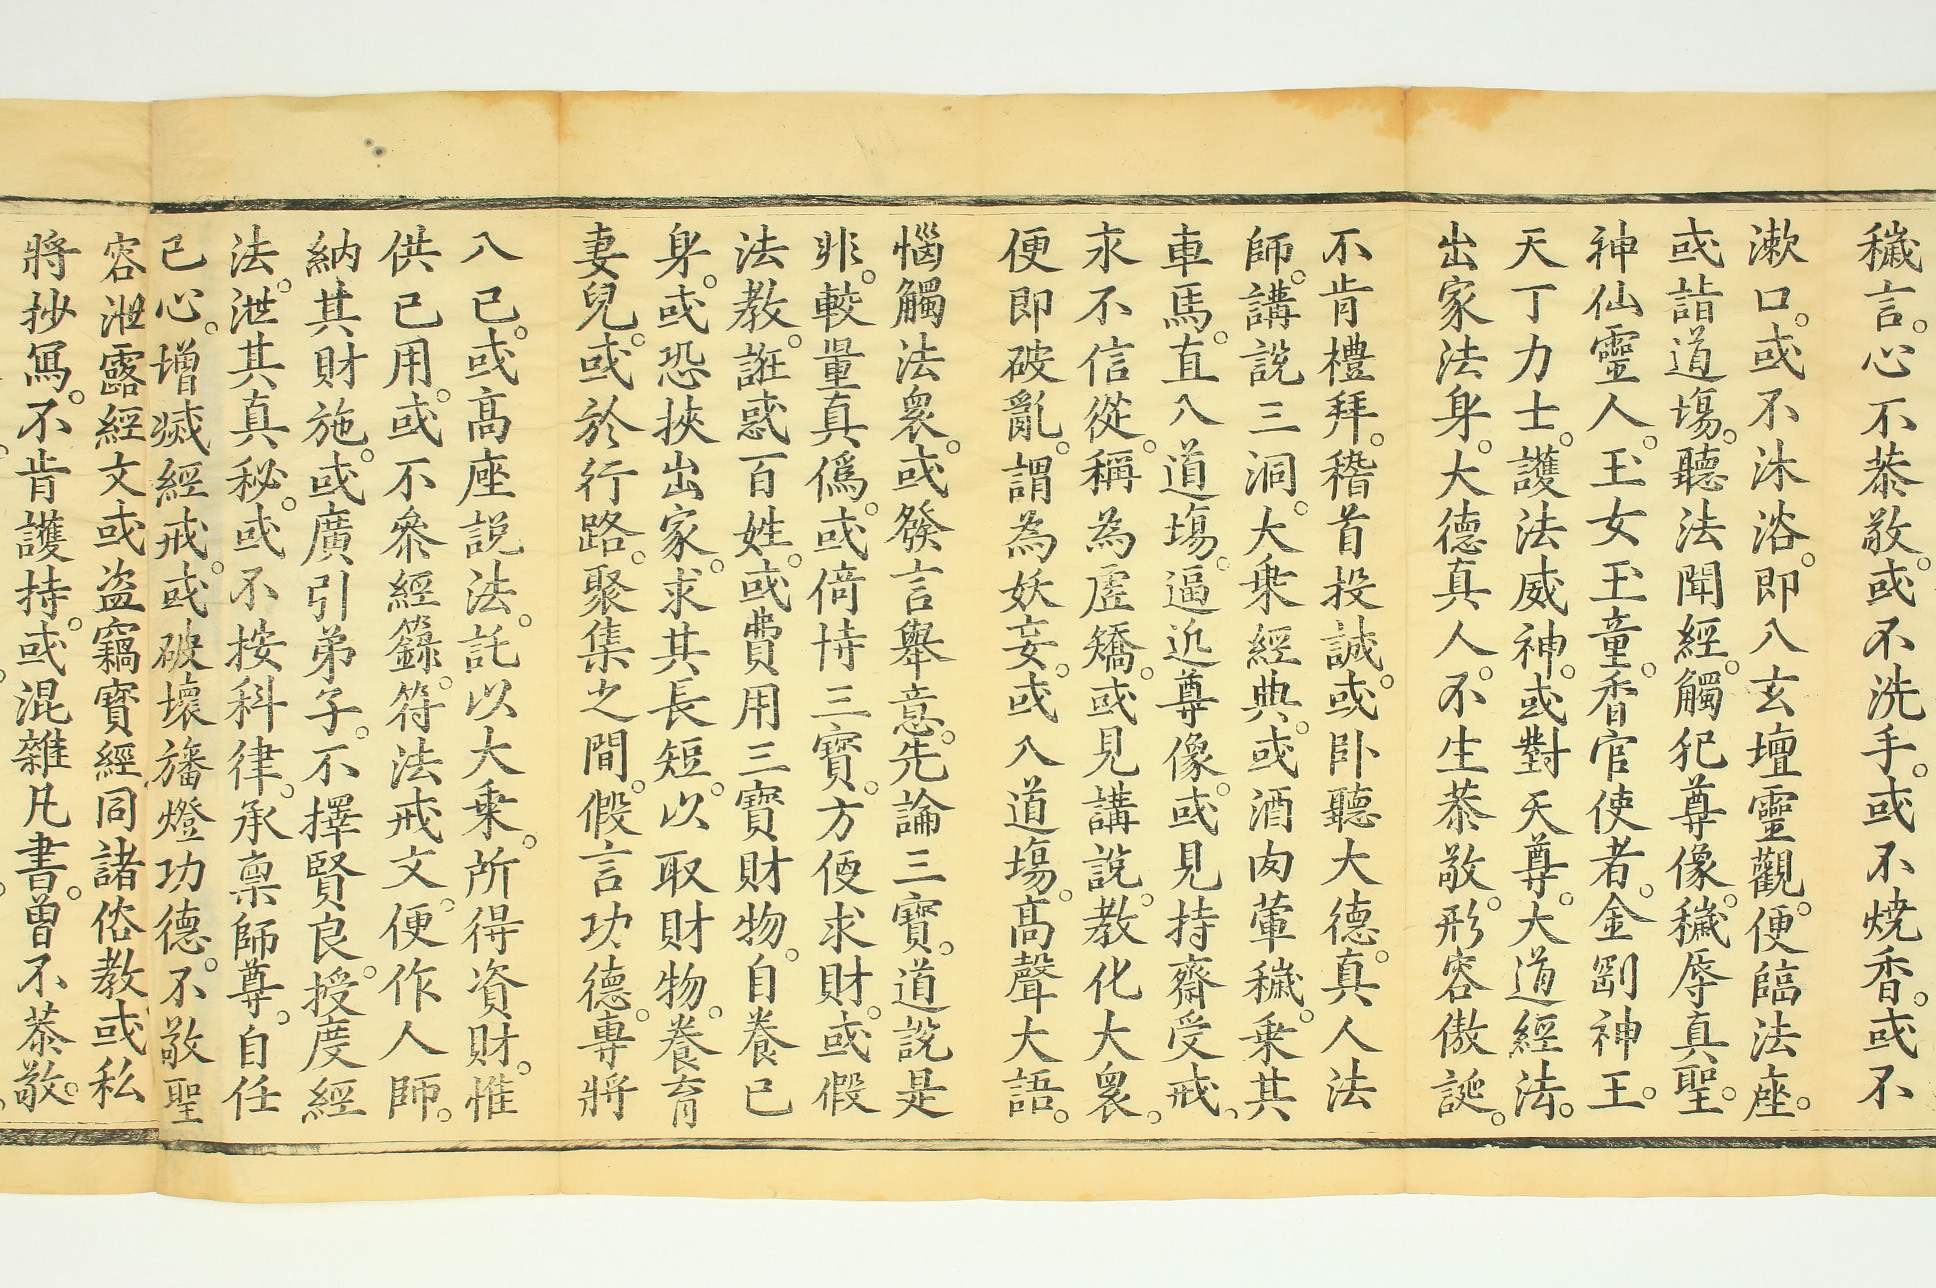 穢言。心不恭敬。或不洗手。或不燒香。或不
漱口。或不沐浴。即入玄壇靈觀。便臨法座。
或詣道塲。聽法聞經。觸犯尊像。穢辱真聖。
神仙靈人。玉女玉童。香官使者。金劉神王。
天丁力士。護法威神。或對天尊。大道經法。
出家法身。大德真人。不生恭敬。形容傲誕。
不肯禮拜。稽首投誠。或卧聽大德。真人法
師。講說三洞。大乗經典。或酒肉葷穢。乗其
車馬。直入道塲。逼近尊像。或見持齋受戒、
求不信從。稱為虛矯。或見講說。教化大衆。
便即破亂。謂為妖妄。或入道塲。高聲大語。
惱觸法衆。或發言舉意。先論三寶。道說是
非。較量真偽。或倚恃三寶。方便求財。或假
法教。誑惑百姓。或費用三寶財物。自養已
身。或恐挾出家。求其長短。以取財物。養育
妻兒。或於行路。聚集之間。假言功德。專將
入已。或高座說法。託以大乗。所得資財。惟
供已用。或不叅經籙。符法戒文。便作人師。
納其財施。或廣引弟子。不擇賢良。授度經
法。泄其真秘。或不按科律。承稟師尊。自任
已心。增減經戒。或破壞旛燈功德。不敬聖
容泄露經文或盗竊寳經同諸俗教或私
將抄寫。不肯護持。或混雜凡書。曾不恭敬。